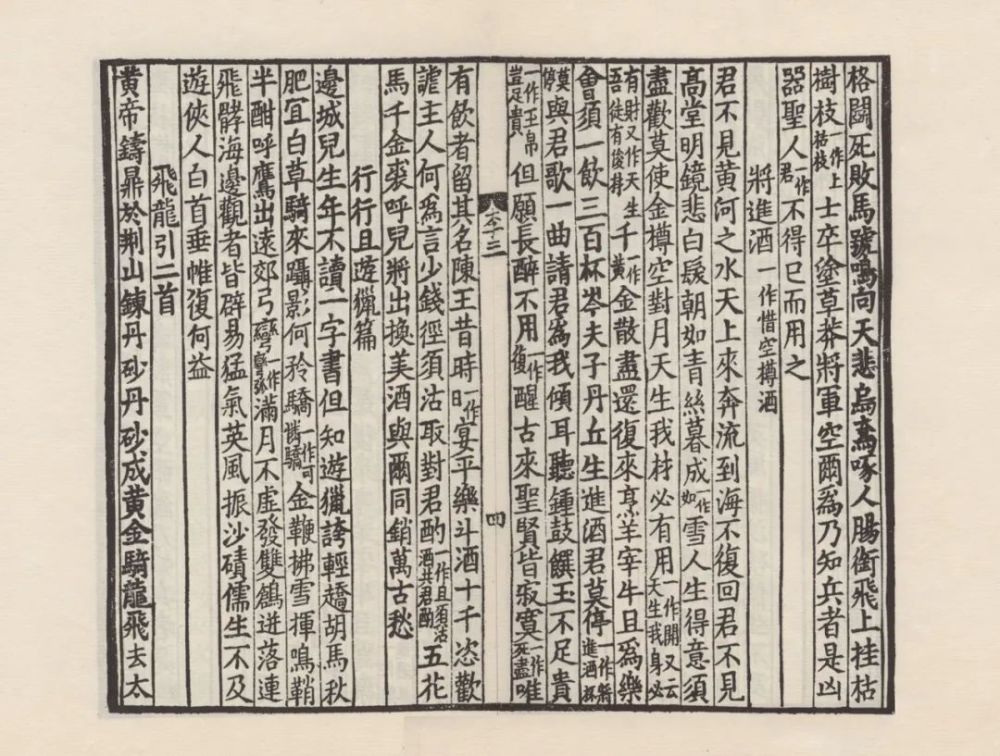 格鬪死敗馬號鳴向天悲烏鳶啄人腸銜飛上挂枯
樹枝一作上枯枝士卒塗草莽將軍空爾爲乃知兵者是凶
器聖人一作君不得已而用之
將進酒一作惜空樽酒
君不見黄河之水天上來奔流到海不復回君不見
高堂明鏡悲白髮朝如青絲暮成一作如雪人生得意須
盡歡莫使金樽空對月天生我材必有用一作開又云天生我身必
有財又作天生吾徒有俊材千一作黄金散盡還復來烹羊宰牛且爲樂
會須一飲三百杯岑夫子丹丘生進酒君莫停一作將進酒杯
莫停與君歌一曲請君爲我傾耳聽鍾鼓饌玉不足貴
一作玉帛豈足貴但願長醉不用一作復醒古來聖賢皆寂寞一作死盡唯
四
有飲者留其名陳王昔時一作日宴平樂斗酒十千恣歡
謔主人何爲言少錢徑須沽取對君酌一作且須沽酒共君酌五花
馬千金裘呼兒將出換美酒與爾同銷萬古愁
行行且遊獵篇
邊城兒生年不讀一字書但知遊獵誇輕趫胡馬秋
肥宜白草騎來躡影何矜驕一作可憐驕金鞭拂雪揮鳴鞘
半酣呼鷹出遠郊弓彎一作滿月不虛發雙鶬迸落連
飛髇海邊觀者皆辟易猛氣英風振沙磧儒生不及
遊俠人白首垂帷復何益
飛龍引二首
黄帝鑄鼎於荆山鍊丹砂丹砂成黄金騎龍飛去太